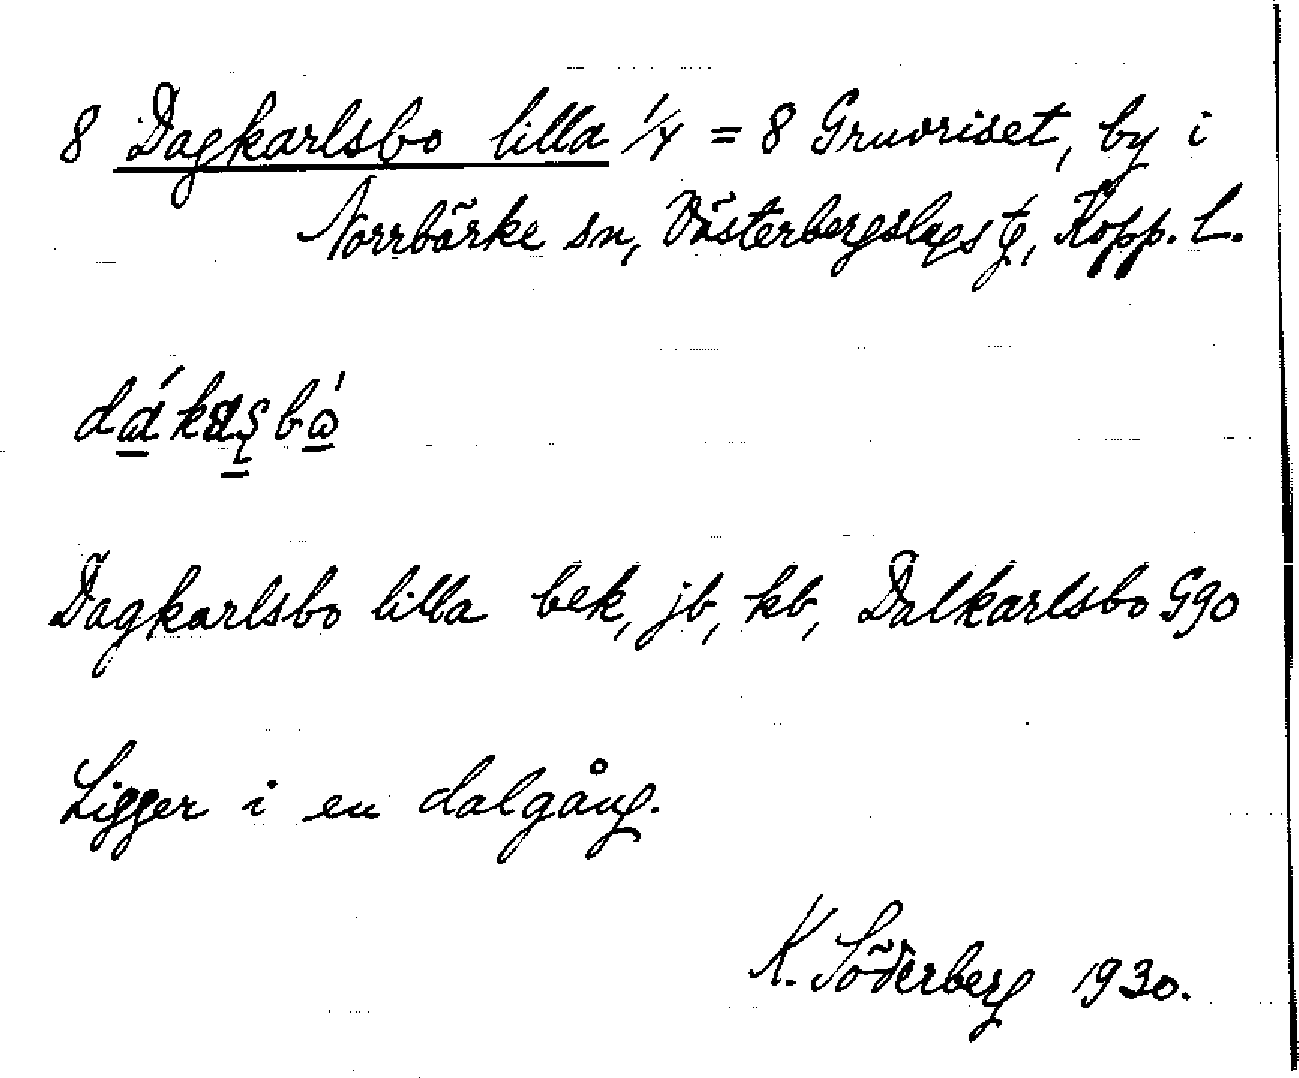 8 Dagkarlsbo lilla 1/4 = 8 Gruvriset, by i
Norrbärke sn, Västerbergslags t, Kopp. L.
Dagkarlsbo lilla bek, jb, kb, Dalkarlsbo G90
Ligger i en dalgång.
K. Söderberg 1930.